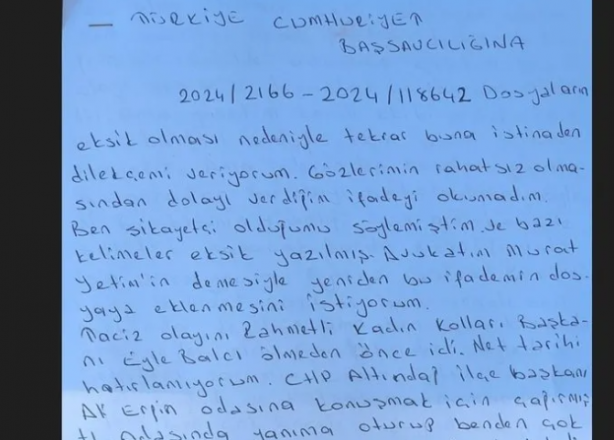 — TÜRKİYE CUMHURİYET
BAŞSAVCILIĞINA
2024/2166 - 2024/118642 Dosyaların
eksik olması nedeniyle tekrar buna istinaden
dilekçemi veriyorum. Gözlerimin rahatsız olma-
sından dolayı verdiğim ifadeyi okumadım.
Ben şikayetçi olduğumu söylemiştim ve bazı
kelimeler eksik yazılmış. Avukatım Murat
Yetim'in demesiyle yeniden bu ifademin dos.
yaya eklenmesini istiyorum.
Taciz olayını Rahmetli Kadın Kolları Başka-
nı Balcı ölmeden önce idi. Net tarihi
hatırlamıyorum. CHP Altındağ ilçe başkanı
odasına konuşmak için çağırmış
tı odasında yanıma oturup benden çok